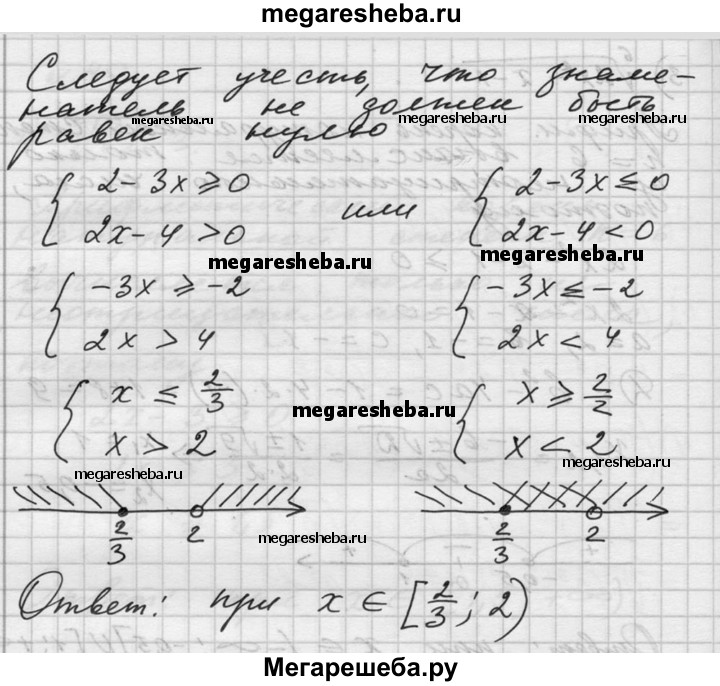 megaresheba.ru
Следует учесть, что знаме-
натель не должен быть
megaresheba.ru megaresheba.ru megaresheba.ru
равен нулю
{ 2-3x ≥ 0 или { 2-3x ≤ 0
2x-4 > 0 2x-4 < 0
megaresheba.ru megaresheba.ru
{ -3x ≥ -2 { -3x ≤ -2
2x > 4 2x < 4
{ x ≤ 2/3 { x ≥ 2/2
megaresheba.ru
x > 2 x < 2
megaresheba.ru megaresheba.ru
2/3 2 2/3 2
megaresheba.ru
Ответ: при x ∈ [2/3; 2)
Мегарешеба.ру